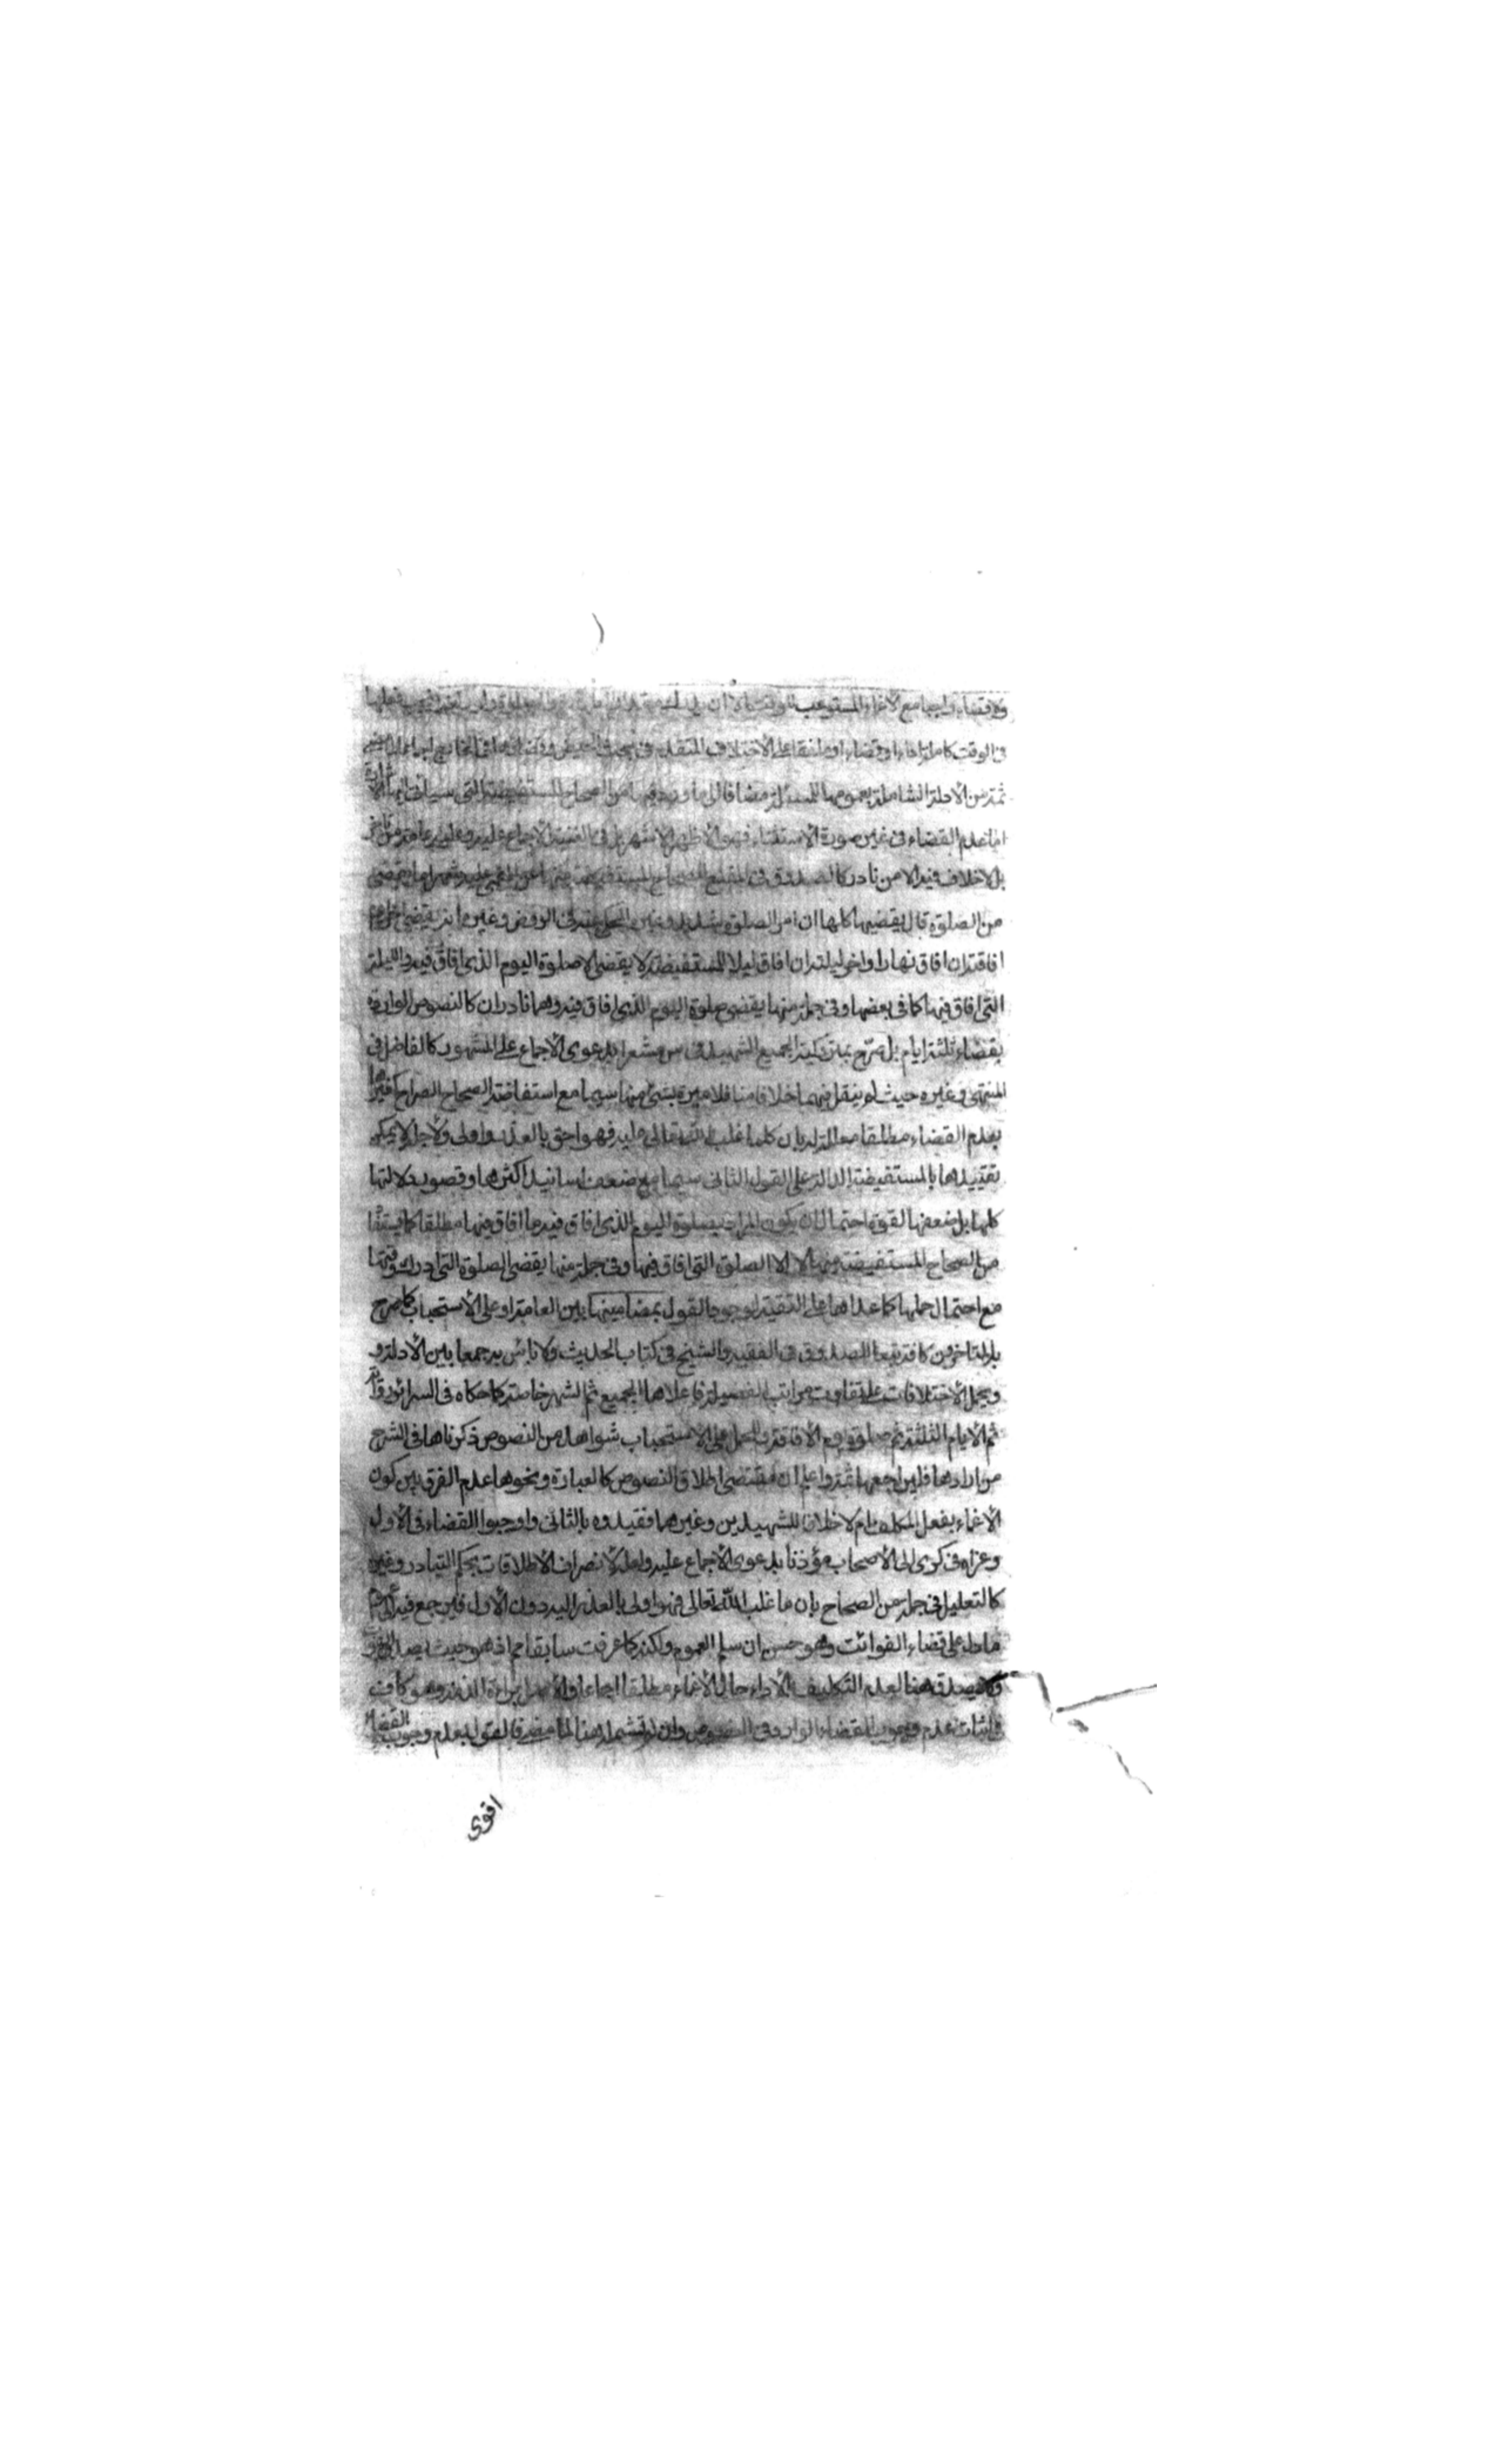 ولا قضاء واجبا مع الاغماء المستوعب للوقت الا ان يدرك
فى الوقت كاملة اداء او قضاء او ملفقا على الاختلاف المتقدم فى بحث الحيض
ثمة من الادلة الشاملة بعمومها للمسئلة مضافا الى ما ورد فيها من الصحاح المستفيضة التى سياتى اليها الاشارة
اما عدم القضاء فى غير صورة الاستثناء فهو الاظهر الاشهر بل فى الغنية الاجماع عليه وعليه عامة من تاخر
بل لا خلاف فيه الا من نادر كالصدوق فى المقنع للصحاح المستفيضة منها عن المغمى عليه شهرا ما يقضى
من الصلوة قال يقضيها كلها ان امر الصلوة شديد وغيره المحكى عنه فى الروض وغيره انه يقضى اخر يوم
افاقته ان افاق نهارا واخر ليلته ان افاق ليلا للمستفيضة لا يقضى الا صلوة اليوم الذى افاق فيه والليلة
التى افاق فيها كما فى بعضها وفى جملة منها يقضى صلوة اليوم الذى افاق فيه وهما نادران كالنصوص الواردة
بقضاء ثلثة ايام بل صرّح بمتروكية الجميع الشهيد فى س مشعرا بدعوى الاجماع على المشهور كالفاضل فى
المنتهى وغيره حيث لم ينقل فيهما خلافا منا فلا عبرة بشئ منها سيما مع استفاضة الصحاح الصراح وغيرها
بعدم القضاء مطلقا معللة له بان كلما غلب الله تعالى عليه فهو احق بالعذر واولى ولاجله لا يمكن
تقييدها بالمستفيضة الدالة على القول الثانى سيما مع ضعف اسانيد اكثرها وقصور دلالتها
كلها بل ضعفها لقوة احتمال ان يكون المراد بصلوة اليوم الذى افاق فيه ما افاق فيها مطلقا كما يستفا
من الصحاح المستفيضة فيها لا الا الصلوة التى افاق فيها وفى جملة منها يقضى الصلوة التى ادرك وقتها
مع احتمال حملها كما عداها على التقية لوجود القول بمضامينها بين العامة او على الاستحباب كما صرح
به المتاخرون كافة تبعا للصدوق فى الفقيه والشيخ فى كتاب الحديث ولا باس به جمعا بين الادلة و
ويحمل الاختلافات على تفاوت مراتب الفضيلة فاعلاها الجميع ثم الشهر خاصة كما حكاه فى السرائر
ثم الايام الثلثة ثم صلوة يوم الافاقة وللحمل على الاستحباب شواهد من النصوص ذكرناها فى الشرح
من ارادها فليراجعها ثمة واعلم ان مقتضى اطلاق النصوص كالعبارة ونحوها عدم الفرق بين كون
الاغماء بفعل المكلف ام لا خلافا للشهيدين وغيرهما فقيدوه بالثانى واوجبوا القضاء فى الاول
وعزاه فى كرى الى الاصحاب مؤذنا بدعوى الاجماع عليه ولعله لانصراف الاطلاقات بحكم التبادر وغيره
كالتعليل فى جملة من الصحاح بان ما غلب الله تعالى فهو اولى بالعذر اليه دون الاول فليرجع فيه الى عموم
ما دل على قضاء الفوائت وهو حسن ان سلم العموم ولكنه كما عرفت سابقا مم اذ هو حيث يصدق الفوت
ولا يصدق هنا لعدم التكليف بالاداء حال الاغماء مطلقا اجماعا والاصل براءة الذمة وهو كاف
فى اثبات عدم وجوب القضاء الوارد فى النصوص وان لم تشمله هنا لما مضى فالقول بعدم وجوب القضاء
اقوى